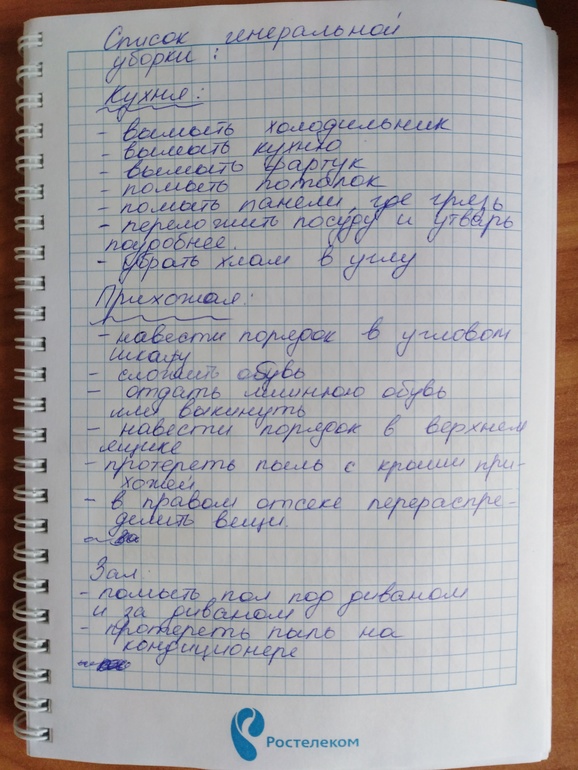 Список генеральной
уборки:
Кухня:
- вымыть холодильник
- вымыть кухню
- вымыть фартук
- помыть потолок
- помыть панели, где грязь
- переложить посуду и утварь
подробнее.
- убрать хлам в углу
Прихожая:
- навести порядок в угловом
шкафу
- сложить обувь
- отдать лишнюю обувь
или выкинуть
- навести порядок в верхнем
ящике
- протереть пыль с крыши при-
хожей
- в правом отсеке перераспре-
делить вещи.
Зал
- помыть пол под диваном
и за диваном
- протереть пыль на
кондиционере
Ростелеком